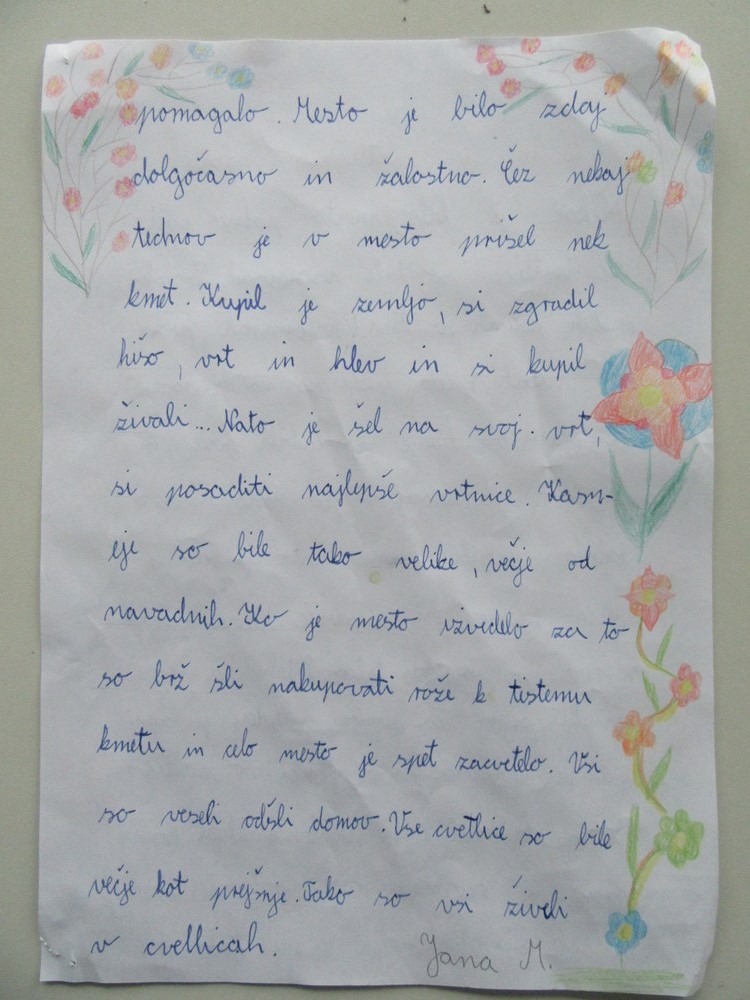 pomagalo. Mesto je bilo zdaj
dolgočasno in žalostno. Čez nekaj
tednov je v mesto prišel nek
kmet. Kupil je zemljo, si zgradil
hišo, vrt in hlev in si kupil
živali... Nato je šel na svoj vrt,
si posaditi najlepše vrtnice. Kasn-
eje so bile tako velike, večje od
navadnih. Ko je mesto izvedelo za to
so brž šli nakupovati rože k tistemu
kmetu in celo mesto je spet zacvetelo. Vsi
so veseli odšli domov. Vse cvetlice so bile
večje kot prejšnje. Tako so vsi živeli
v cvetlicah.
Jana M.